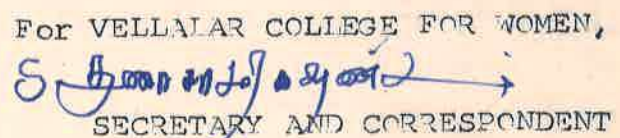 For VELLALAR COLLEGE FOR WOMEN,
SECRETARY AND CORRESPONDENT